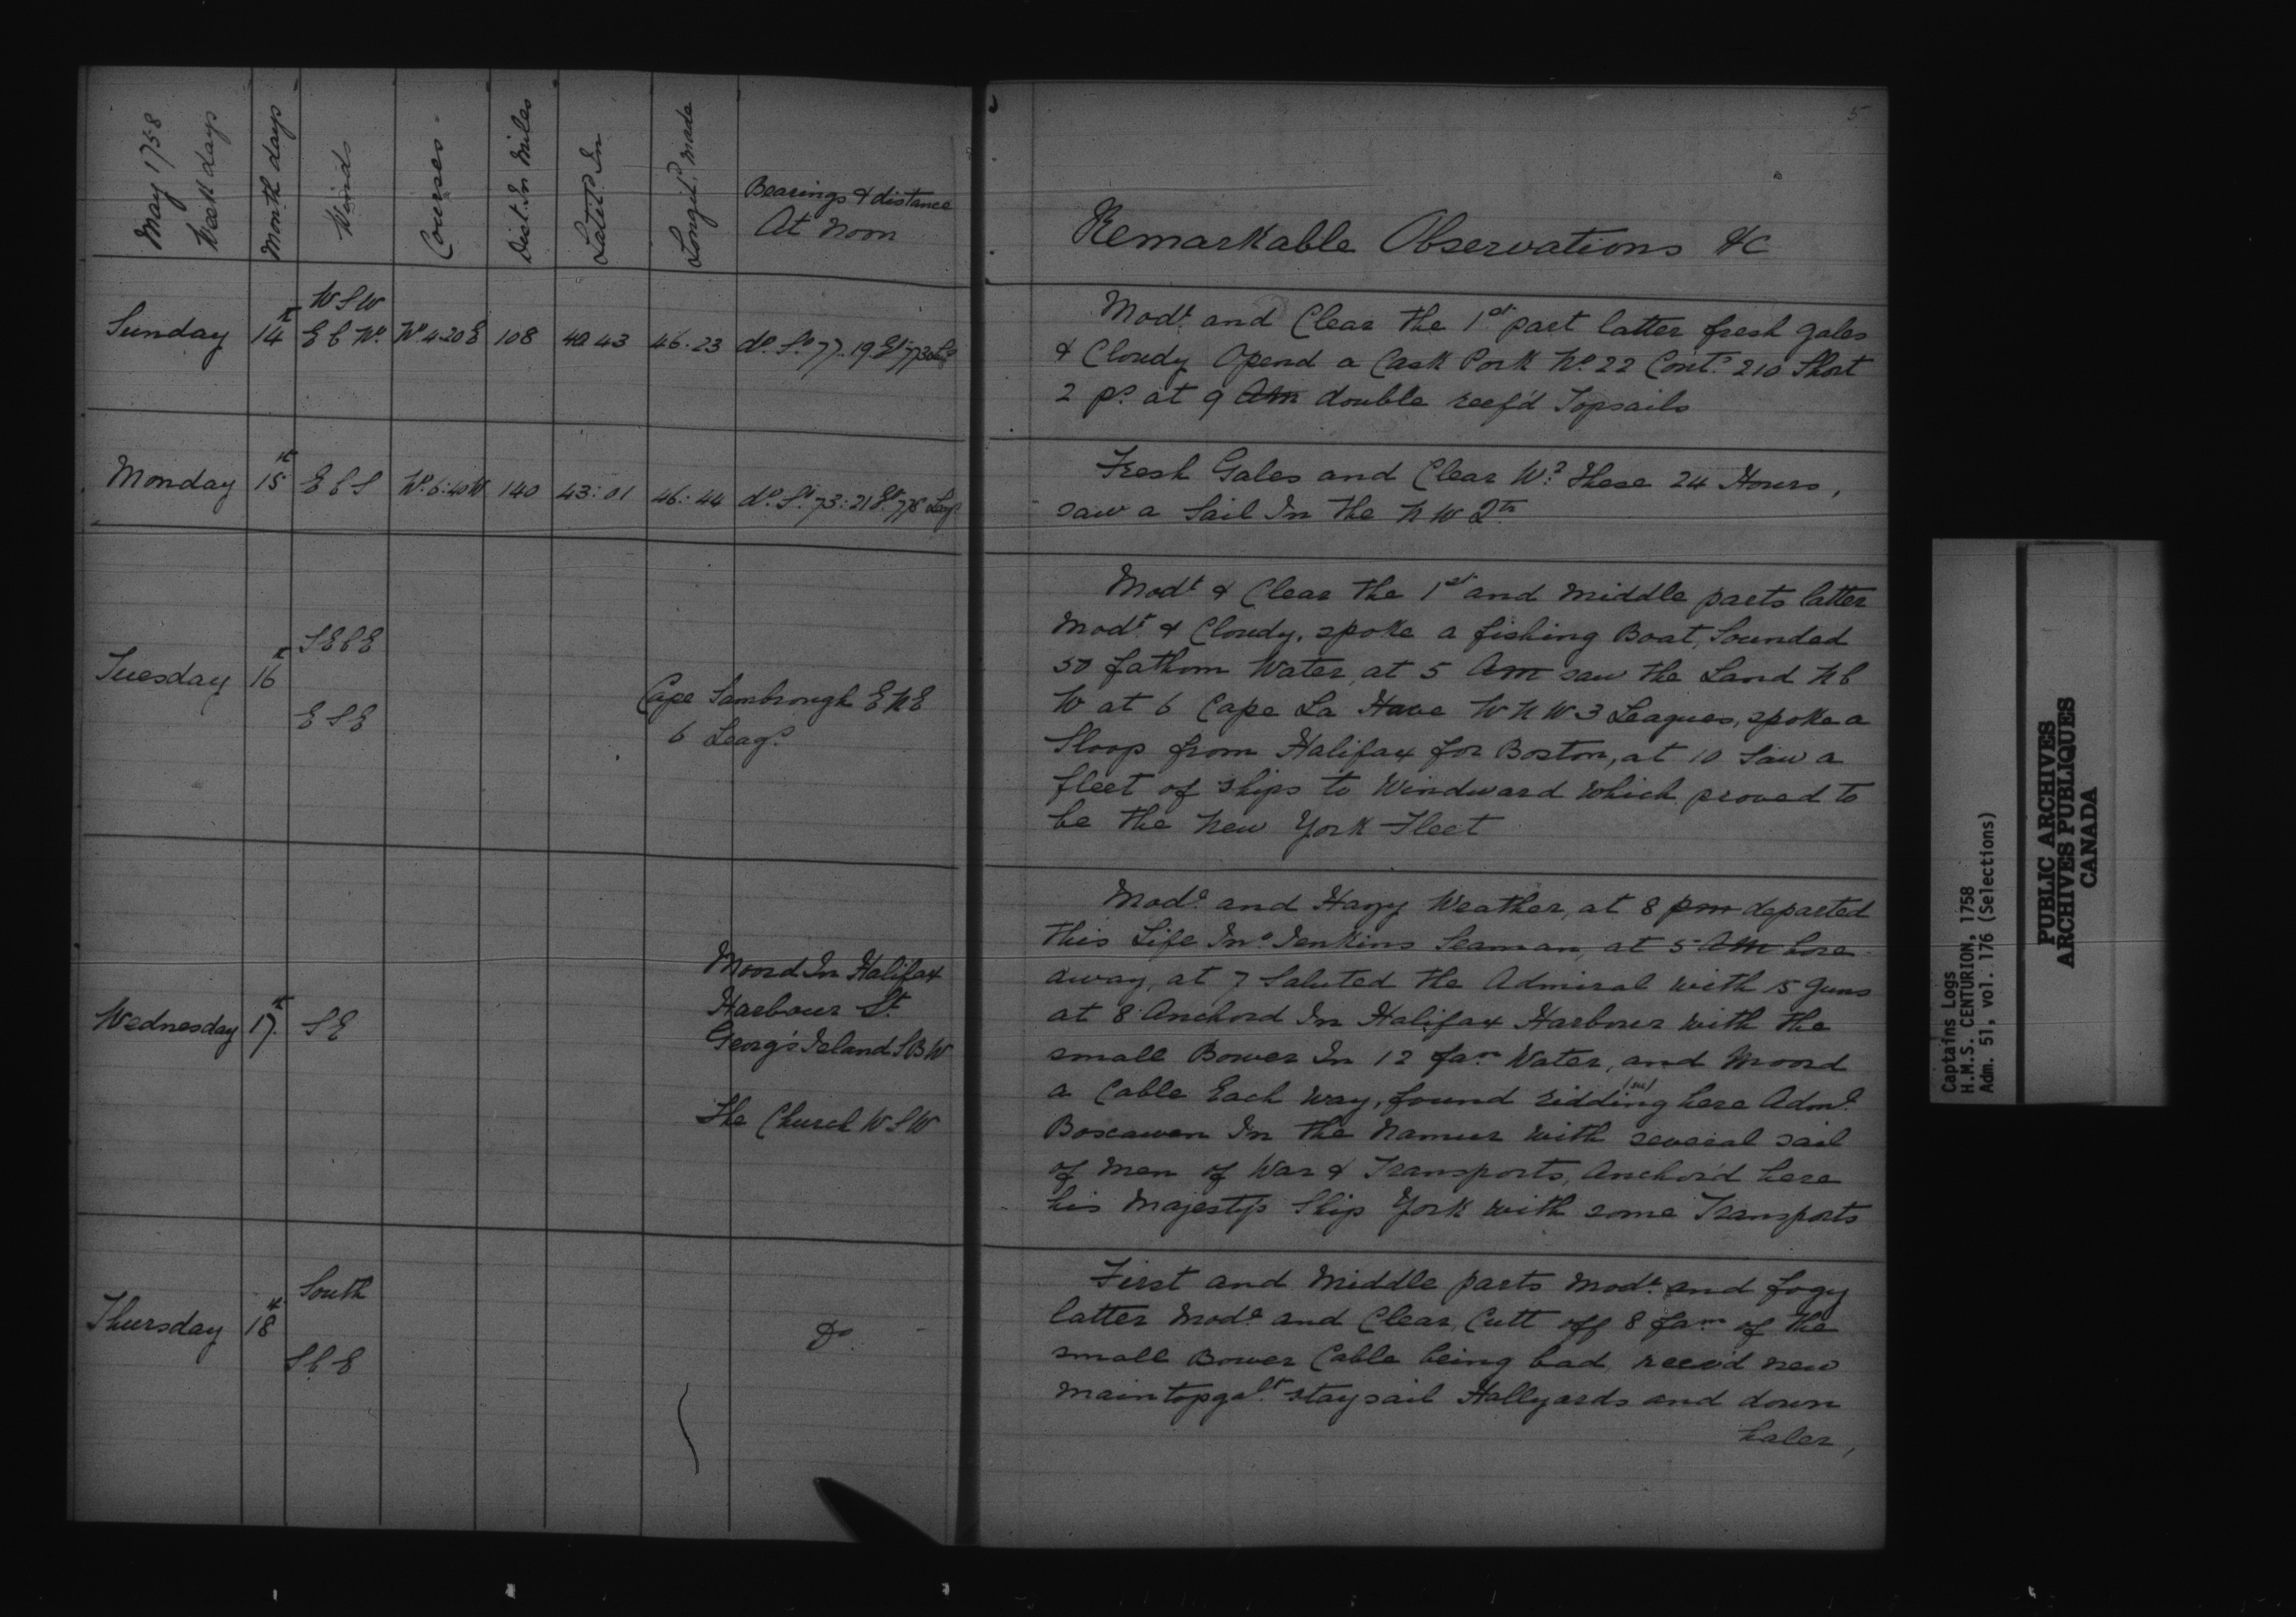 May 1758
Week days
Month days
Winds
Courses
Dist. In Miles
Latitd. In
Longitd. made
Bearings & distance
At Noon
Sunday 14th WSW
E b No. No. 4.20 E 108 40 43 46.23 do. So. 77.19 Et. 773 Leags
Monday 15th E b S No. 6:40 W 140 43:01 46:44 do. So. 73:21 Et. 778 Leags
Tuesday 16th SEbE
ESE
Cape Sambrough ENE
6 Leags.
Wednesday 17th SE
Moord In Halifax
Harbour St.
Georg's Island SBW
the Church WSW
Thursday 18th South
SbE
Do.
5
Remarkable Observations &c
Modt. and Clear the 1st part latter fresh gales
& Cloudy Opend a Cask Pork No. 22 Conts. 210 Short
2 ps. at 9 Am double reef'd Topsails
Fresh Gales and Clear Wr. these 24 Hours,
saw a Sail In the NW Qtr
Modt & Clear the 1st and middle parts latter
Modt. & Cloudy, spoke a fishing Boat, Sounded
50 fathom Water, at 5 Am saw the Land Nb
W at 6 Cape La Have WNW 3 Leagues, spoke a
Sloop from Halifax for Boston, at 10 Saw a
fleet of ships to Windward which proved to
be the New York Fleet
Modt. and Hazy Weather, at 8 pm departed
this Life Jno. Jenkins Seaman, at 5 AM bore
away, at 7 Saluted the Admiral with 15 guns
at 8 Anchord In Halifax Harbour with the
small Bower In 12 fam Water, and Moord
a Cable Each way, found ridding (sic) here Adml.
Boscawen In the Namur with several sail
of Men of War & Transports, Anchor'd here
his Majesty's Ship York with some Transports
First and Middle parts Modt. and fogy
latter Modt. and Clear, Cutt off 8 fam. of the
small Bower Cable being bad, reev'd new
maintopgalt. staysail Hallyards and down
haler,
Captains Logs
H.M.S. CENTURION, 1758
Adm. 51, vol. 176 (Selections)
PUBLIC ARCHIVES
ARCHIVES PUBLIQUES
CANADA